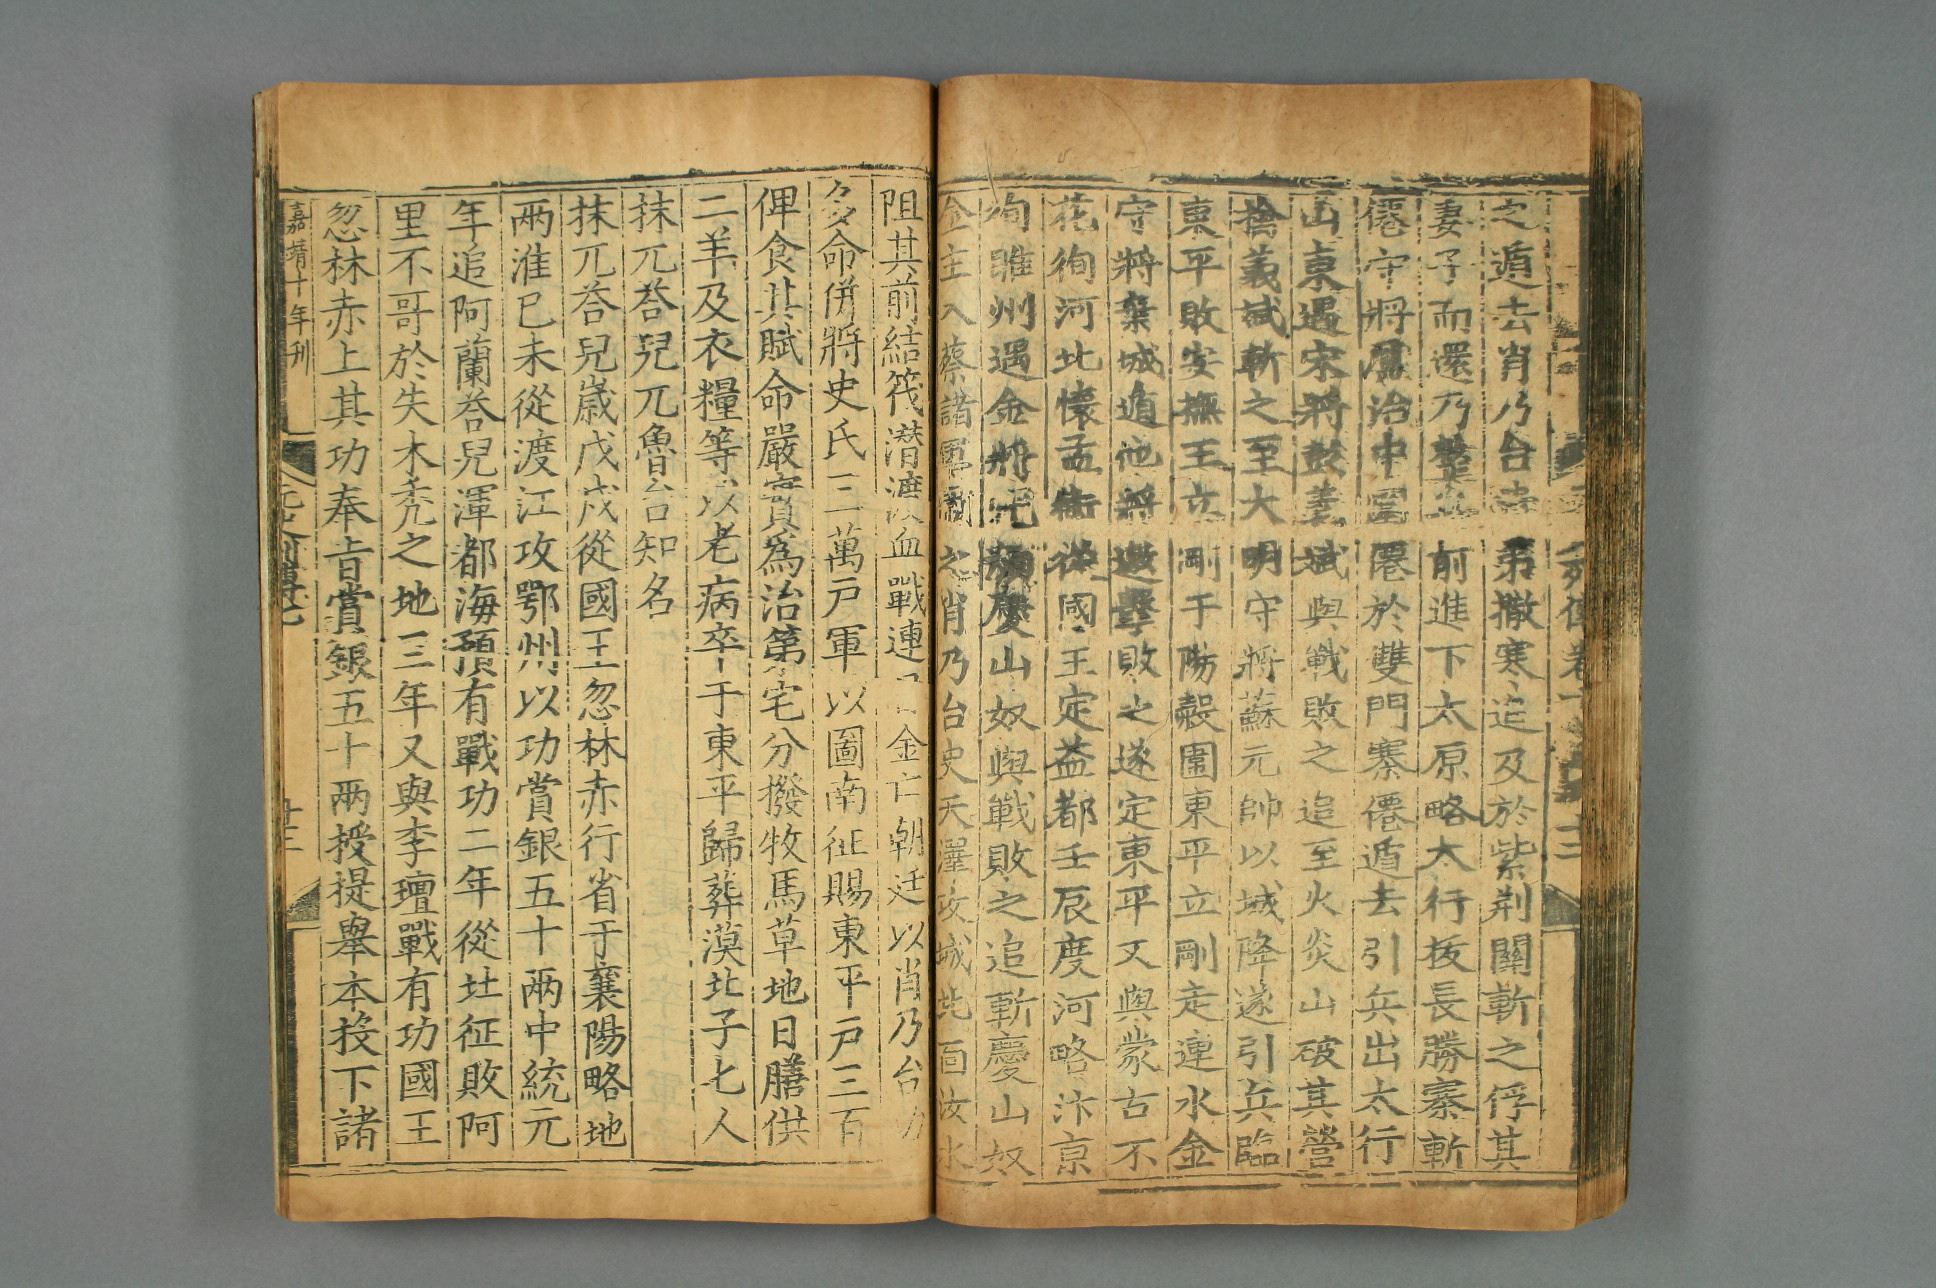 之遁去肖乃台遣弟撒寒追及於紫荆關斬之俘其
妻子而還乃整兵前進下太原略太行拔長勝寨斬
僊守將盧治中圍僊於雙門寨僊遁去引兵出太行
山東遇宋將彭義斌與戰敗之追至火炎山破其營
擒義斌斬之至大明守將蘇元帥以城降遂引兵臨
東平敗安撫王立剛于陽穀圍東平立剛走連水金
守將棄城遁他將邀擊敗之遂定東平又與蒙古不
花徇河北懷孟衛從國王定益都壬辰度河略汴京
徇睢州遇金將完顏慶山奴與戰敗之追斬慶山奴
金主入蔡諸軍圍之肖乃台史天澤攻城北面汝水
阻其前結筏潛渡血戰連日金亡朝廷以肖乃台功
多命併將史氏三萬戶軍以圖南征賜東平戶三百
俾食其賦命嚴實爲治第宅分撥牧馬草地日膳供
二羊及衣糧等以老病卒于東平歸葬漠北子七人
抹兀荅兒兀魯台知名
抹兀荅兒歲戊戌從國王忽林赤行省于襄陽略地
兩淮巳未從渡江攻鄂州以功賞銀五十兩中統元
年追阿蘭荅兒渾都海預有戰功二年從北征敗阿
里不哥於失木禿之地三年又與李璮戰有功國王
忽林赤上其功奉旨賞銀五十兩授提舉本投下諸
嘉靖十年刊